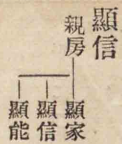 顯信
親房
顯家
顯信
顯能